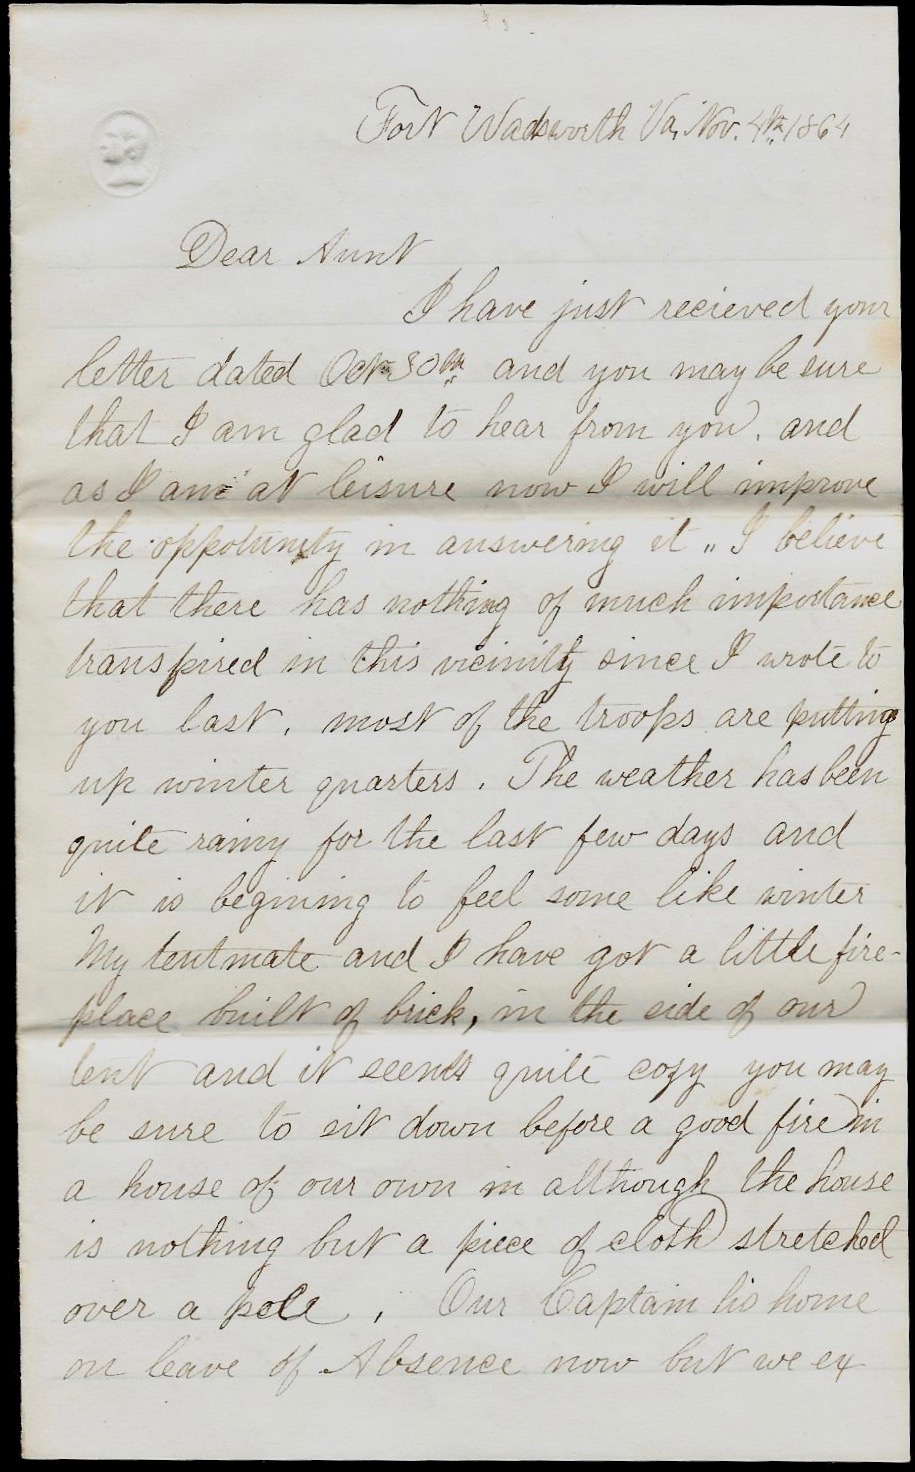 Fort Wadsworth Va, Nov. 4th, 1864
Dear Aunt
I have just recieved your
letter dated Oct 30th and you may be sure
that I am glad to hear from you. and
as I am at leisure now I will improve
the oppotunity in answering it " I believe
that there has nothing of much importance
transpired in this vicinity since I wrote to
you last. most of the troops are putting
up winter quarters. The weather has been
quite rainy for the last few days and
it is begining to feel some like winter
My tentmate and I have got a little fire-
place built of brick, in the side of our
tent and it seems quite cozy you may
be sure to sit down before a good fire in
a house of our own in although the house
is nothing but a piece of cloth stretched
over a pole. Our Captain is home
on leave of Absence now but we ex